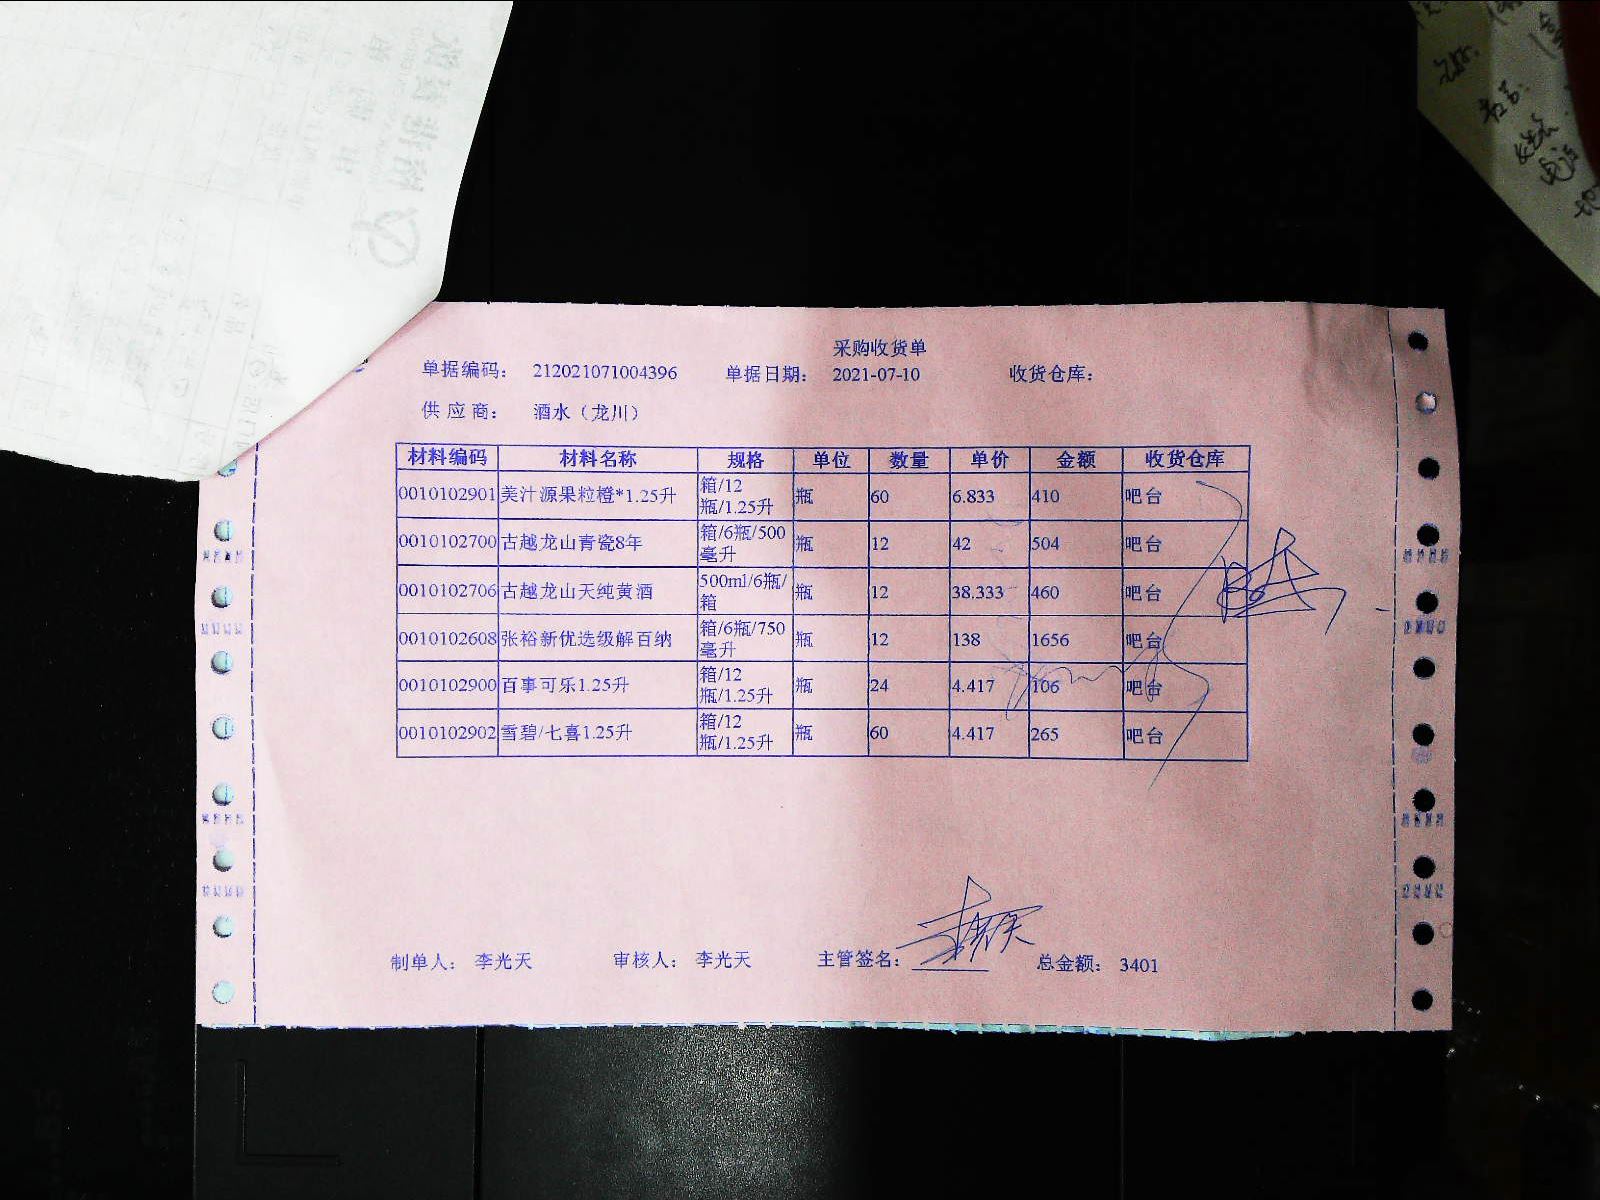 采购收货单
单据编码： 212021071004396 单据日期： 2021-07-10 收货仓库：
供 应 商： 酒水（龙川）
材料编码 材料名称 规格 单位 数量 单价 金额 收货仓库
0010102901 美汁源果粒橙*1.25升 箱/12瓶/1.25升 瓶 60 6.833 410 吧台
0010102700 古越龙山青瓷8年 箱/6瓶/500毫升 瓶 12 42 504 吧台
0010102706 古越龙山天纯黄酒 500ml/6瓶/箱 瓶 12 38.333 460 吧台
0010102608 张裕新优选级解百纳 箱/6瓶/750毫升 瓶 12 138 1656 吧台
0010102900 百事可乐1.25升 箱/12瓶/1.25升 瓶 24 4.417 106 吧台
0010102902 雪碧/七喜1.25升 箱/12瓶/1.25升 瓶 60 4.417 265 吧台
制单人： 李光天 审核人： 李光天 主管签名： 总金额： 3401